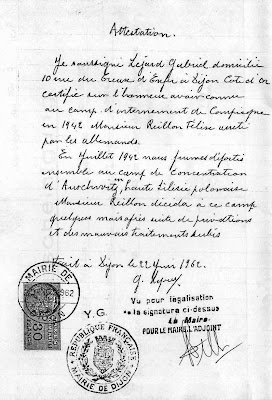 Attestation.
Je soussigné Lejard Gabriel domicilié
10 rue du Creux d'Enfer à Dijon Côte d'Or
certifie sur l'honneur avoir connu
au camp d'internement de Compiègne
en 1942 Monsieur Reillon Félise arrêté
par les allemands.
En Juillet 1942 nous fumes déportés
ensemble au camp de Concentration
d'Auschwitz, haute silésie polonaise
Monsieur Reillon décéda à ce camp
quelques mois après suite de privations
et des mauvais traitements subis
Fait à Dijon le 22 Juin 1962.
G. Lejard
Vu pour légalisation
de la signature ci-dessus
Le Maire
POUR LE MAIRE, L'ADJOINT
Y.G.
MAIRIE DE
1962
REPUBLIQUE FRANÇAISE
MAIRIE DE DIJON